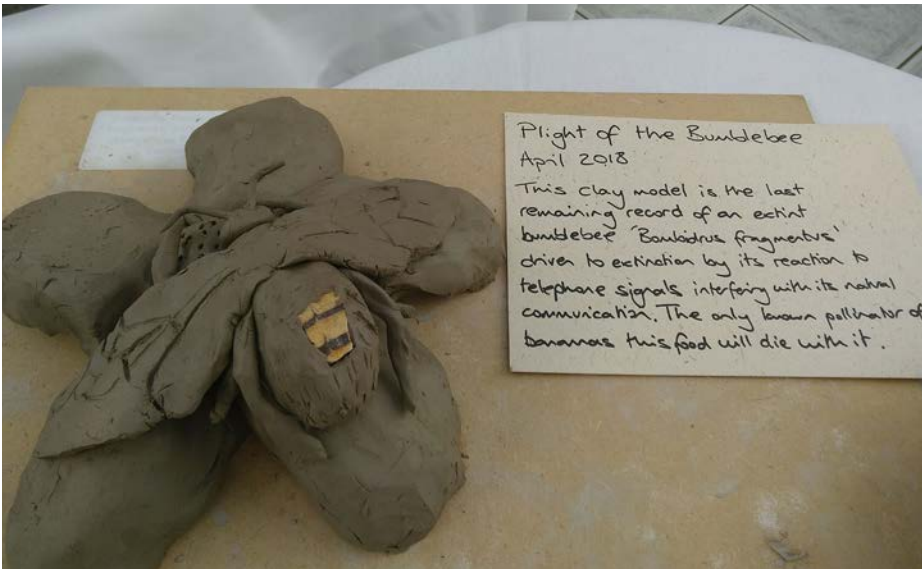 Plight of the Bumblebee
April 2018
This clay model is the last
remaining record of an extint
bumblebee 'Bombidrus fragmentus'
driven to extinction by its reaction to
telephone signals interfering with its natural
communication. The only known pollinator of
bananas this food will die with it.